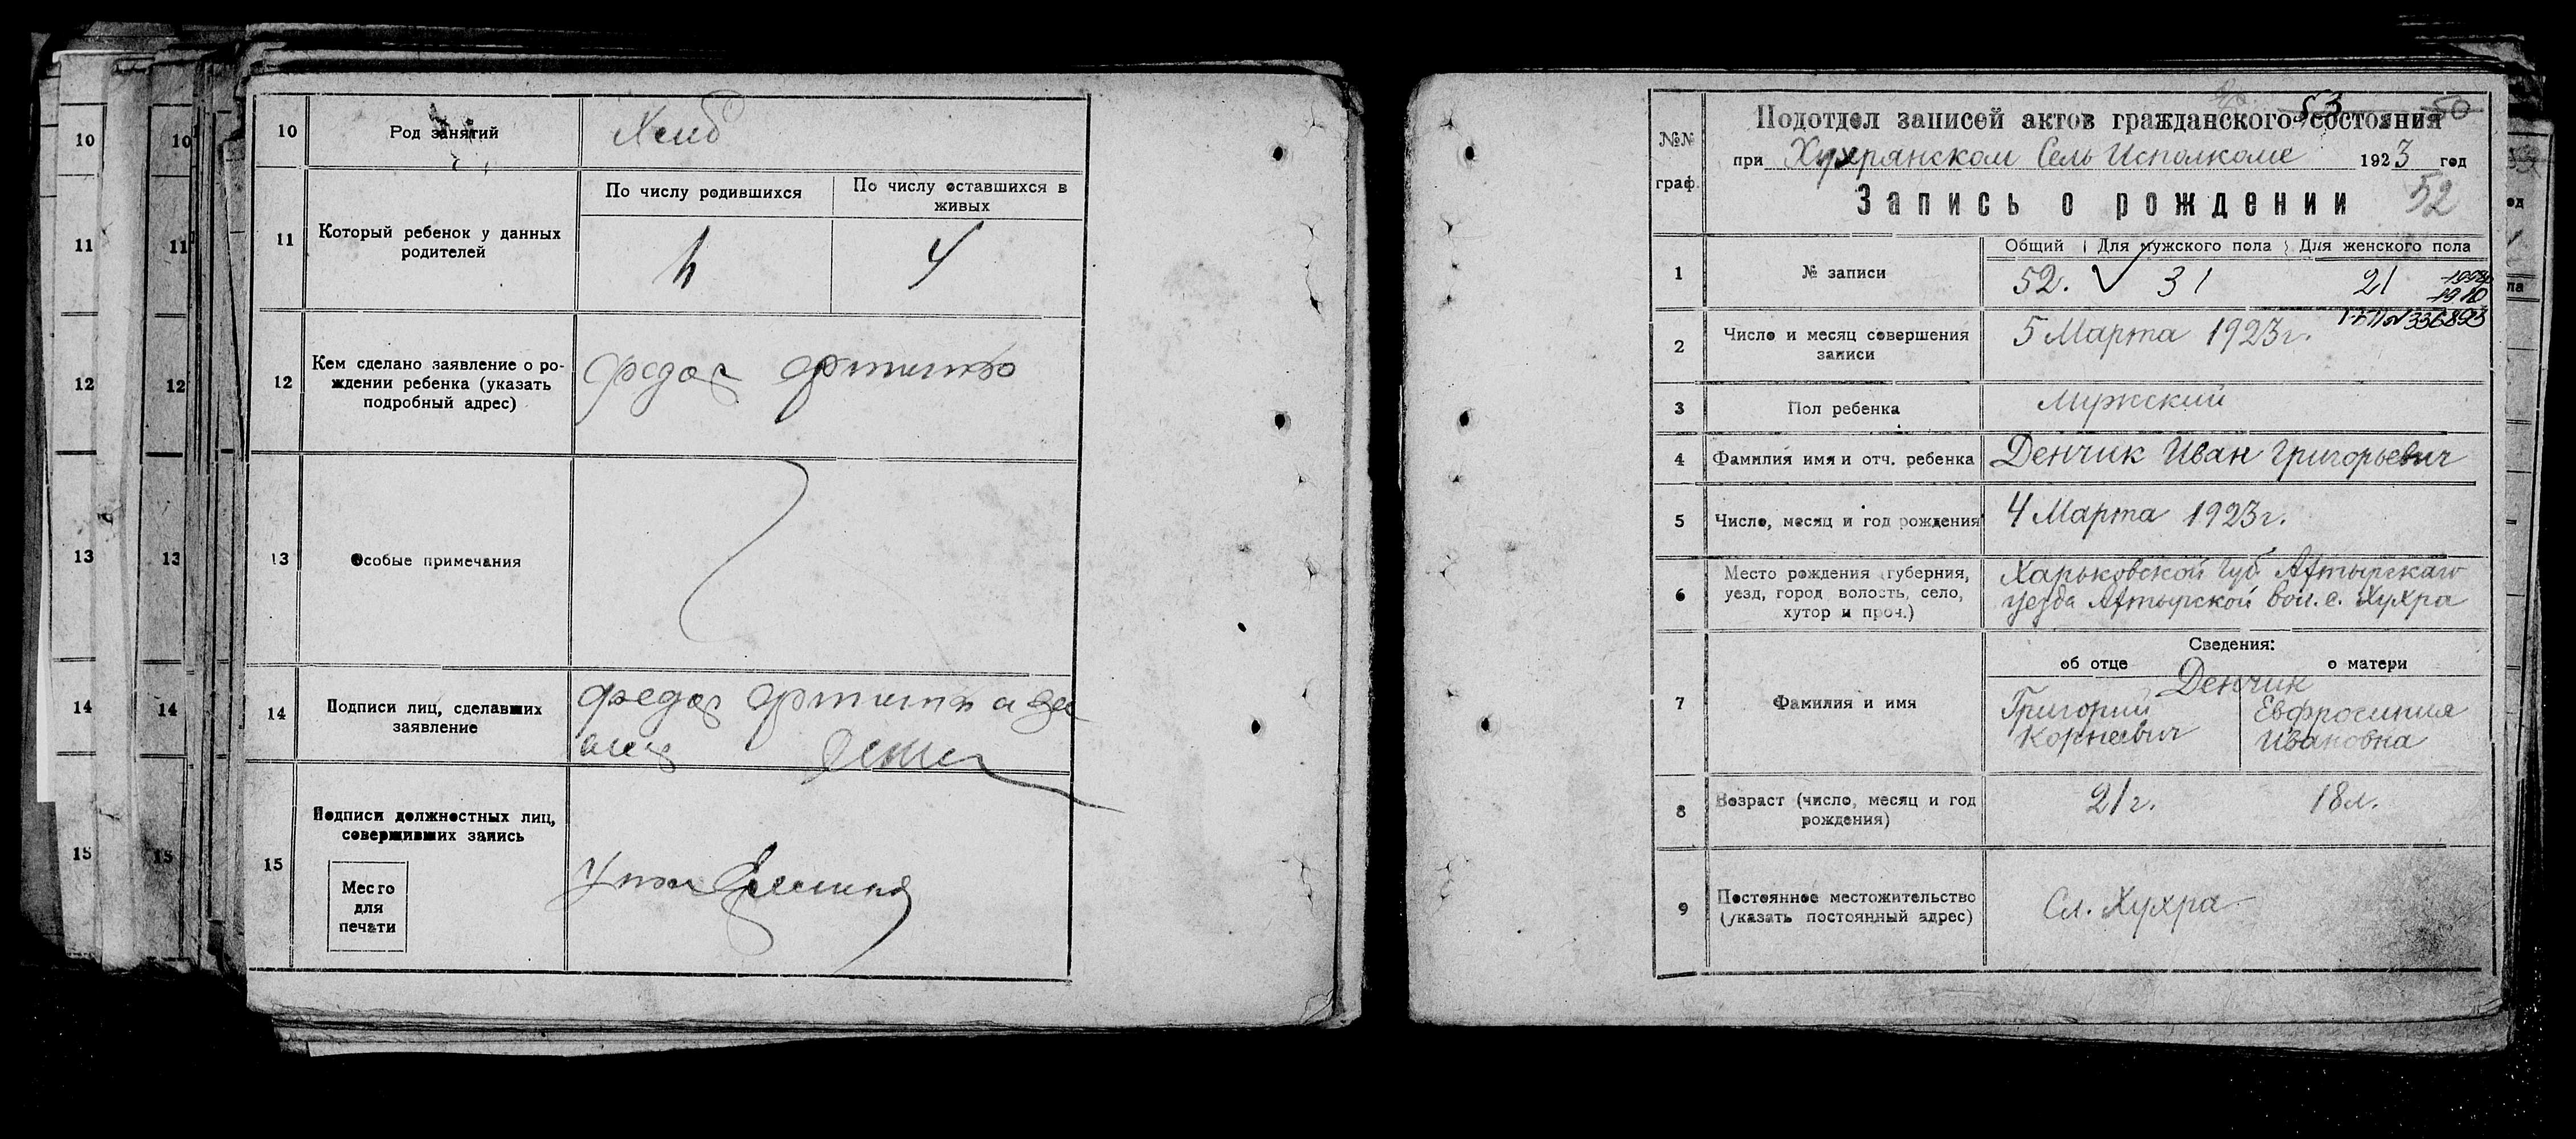 10
11
12
13
14
15
10
11
12
13
14
15
10 Род занятий Хлеб
11 Который ребенок у данных
родителей
По числу родившихся
По числу оставшихся в
живых
4 4
12 Кем сделано заявление о ро-
ждении ребенка (указать
подробный адрес)
Федор
13 Особые примечания
14 Подписи лиц, сделавших
заявление
Федор
15 Подписи должностных лиц,
совершивших запись
Место
для
печати
53 50
№№
граф.
Подотдел записей актов гражданского состояния
при Хухрянском Сель Исполкоме 1923 год
Запись о рождении 52
Общий Для мужского пола Для женского пола
1 № записи 52. 31 21
336893
2 Число и месяц совершения
записи
5 Марта 1923г.
3 Пол ребенка Мужский
4 Фамилия имя и отч. ребенка Денчик Иван Григорьевич
5 Число, месяц и год рождения 4 Марта 1923г.
6 Место рождения (губерния,
уезд, город волость, село,
хутор и проч.)
Харьковской Губ. Ахтырскаго
уезда Ахтырской вол. с. Хухра
Сведения:
об отце о матери
7 Фамилия и имя
Денчик
Григорий
Корневич
Евфросиния
Ивановна
8 Возраст (число, месяц и год
рождения)
21г. 18л.
9 Постоянное местожительство
(указать постоянный адрес)
Сл. Хухра